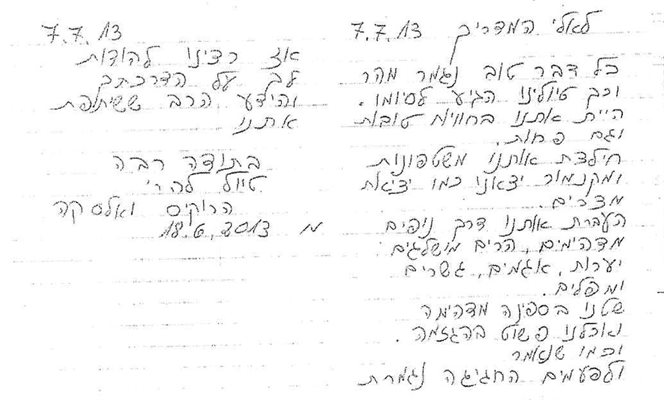 לאלי המדריך 7.7.13
כל דבר טוב נגמר מהר
וכך טיולינו הגיע לסיומו.
היית אתנו בחוויות טובות
וגם פחות.
חילצת אותנו משטפונות
ומקנמור יצאנו כמו יציאת
מצרים.
העברת אותנו דרך נופים
מדהימים, הרים מושלגים
יערות, אגמים, גשרים
ומפלים.
שטנו בספינה מדהימה
ואוכלנו פשוט בהגזמה.
וכמו שנאמר
ולפעמים החגיגה נגמרת
7.7.13
אז רצינו להודות
לך על הדרכתך
והידע הרב ששיתפת
אתנו
בתודה רבה
טיול להרי
הרוקיס ואלסקה
מ 18.6.2013